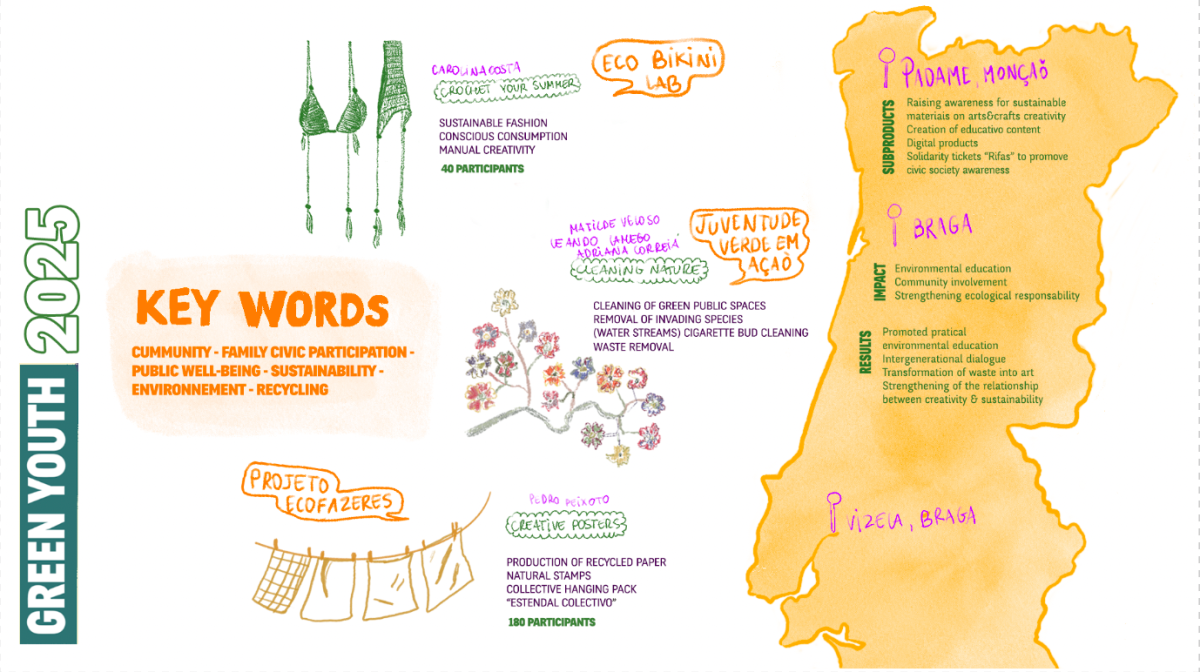 GREEN YOUTH 2025
KEY WORDS
CUMMUNITY - FAMILY CIVIC PARTICIPATION -
PUBLIC WELL-BEING - SUSTAINABILITY -
ENVIRONNEMENT - RECYCLING
CAROLINA COSTA
CROCHET YOUR SUMMER
ECO BIKINI
LAB
SUSTAINABLE FASHION
CONSCIOUS CONSUMPTION
MANUAL CREATIVITY
40 PARTICIPANTS
MATILDE VELOSO
LEANDO LAMEGO
ADRIANA CORREIA
CLEANING NATURE
JUVENTUDE
VERDE EM
AÇAÕ
CLEANING OF GREEN PUBLIC SPACES
REMOVAL OF INVADING SPECIES
(WATER STREAMS) CIGARETTE BUD CLEANING
WASTE REMOVAL
PROJETO
ECOFAZERES
PEDRO PEIXOTO
CREATIVE POSTERS
PRODUCTION OF RECYCLED PAPER
NATURAL STAMPS
COLLECTIVE HANGING PACK
"ESTENDAL COLECTIVO"
180 PARTICIPANTS
PADAME, MONÇAÕ
SUBPRODUCTS
Raising awareness for sustainable
materials on arts&crafts creativity
Creation of educativo content
Digital products
Solidarity tickets "Rifas" to promote
civic society awareness
BRAGA
IMPACT
Environmental education
Community involvement
Strengthening ecological responsability
RESULTS
Promoted pratical
environmental education
Intergenerational dialogue
Transformation of waste into art
Strengthening of the relationship
between creativity & sustainability
VIZELA, BRAGA